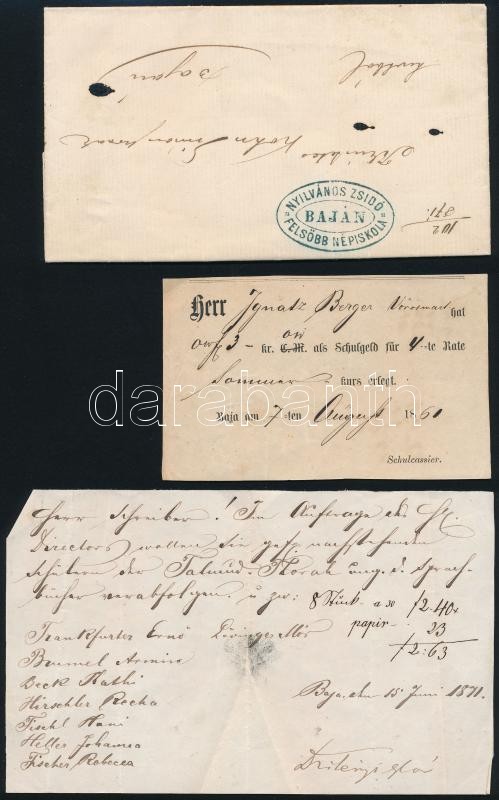 Baján
levéből
Kohn Simon
102/371.
NYILVÁNOS ZSIDÓ
BAJÁN
FELSŐBB NÉPISKOLA
Herr Ignatz Berger Vörösmart hat
3 - kr. C.M. als Schulgeld für 4-te Rate
Sommer-kurs erlegt.
Baja am 7-ten August 1861
Schulcassier.
darabanth
Herr Schreiber! Im Auftrage des H.
Directors wollen Sie gefs. nachstehenden
Schülern der Talmud-Thorah ung. d. Sprach-
bücher verabfolgen. u. zw: 8 Stück a 30 f2.40
papir 23
f2:63
Frankfurter Ernö
Brummel Armin
Beck Kathi
Hirschler Rocha
Fischl Hani
Heller Johanna
Fischer Rebecca
Baja, den 15 Juni 1871.